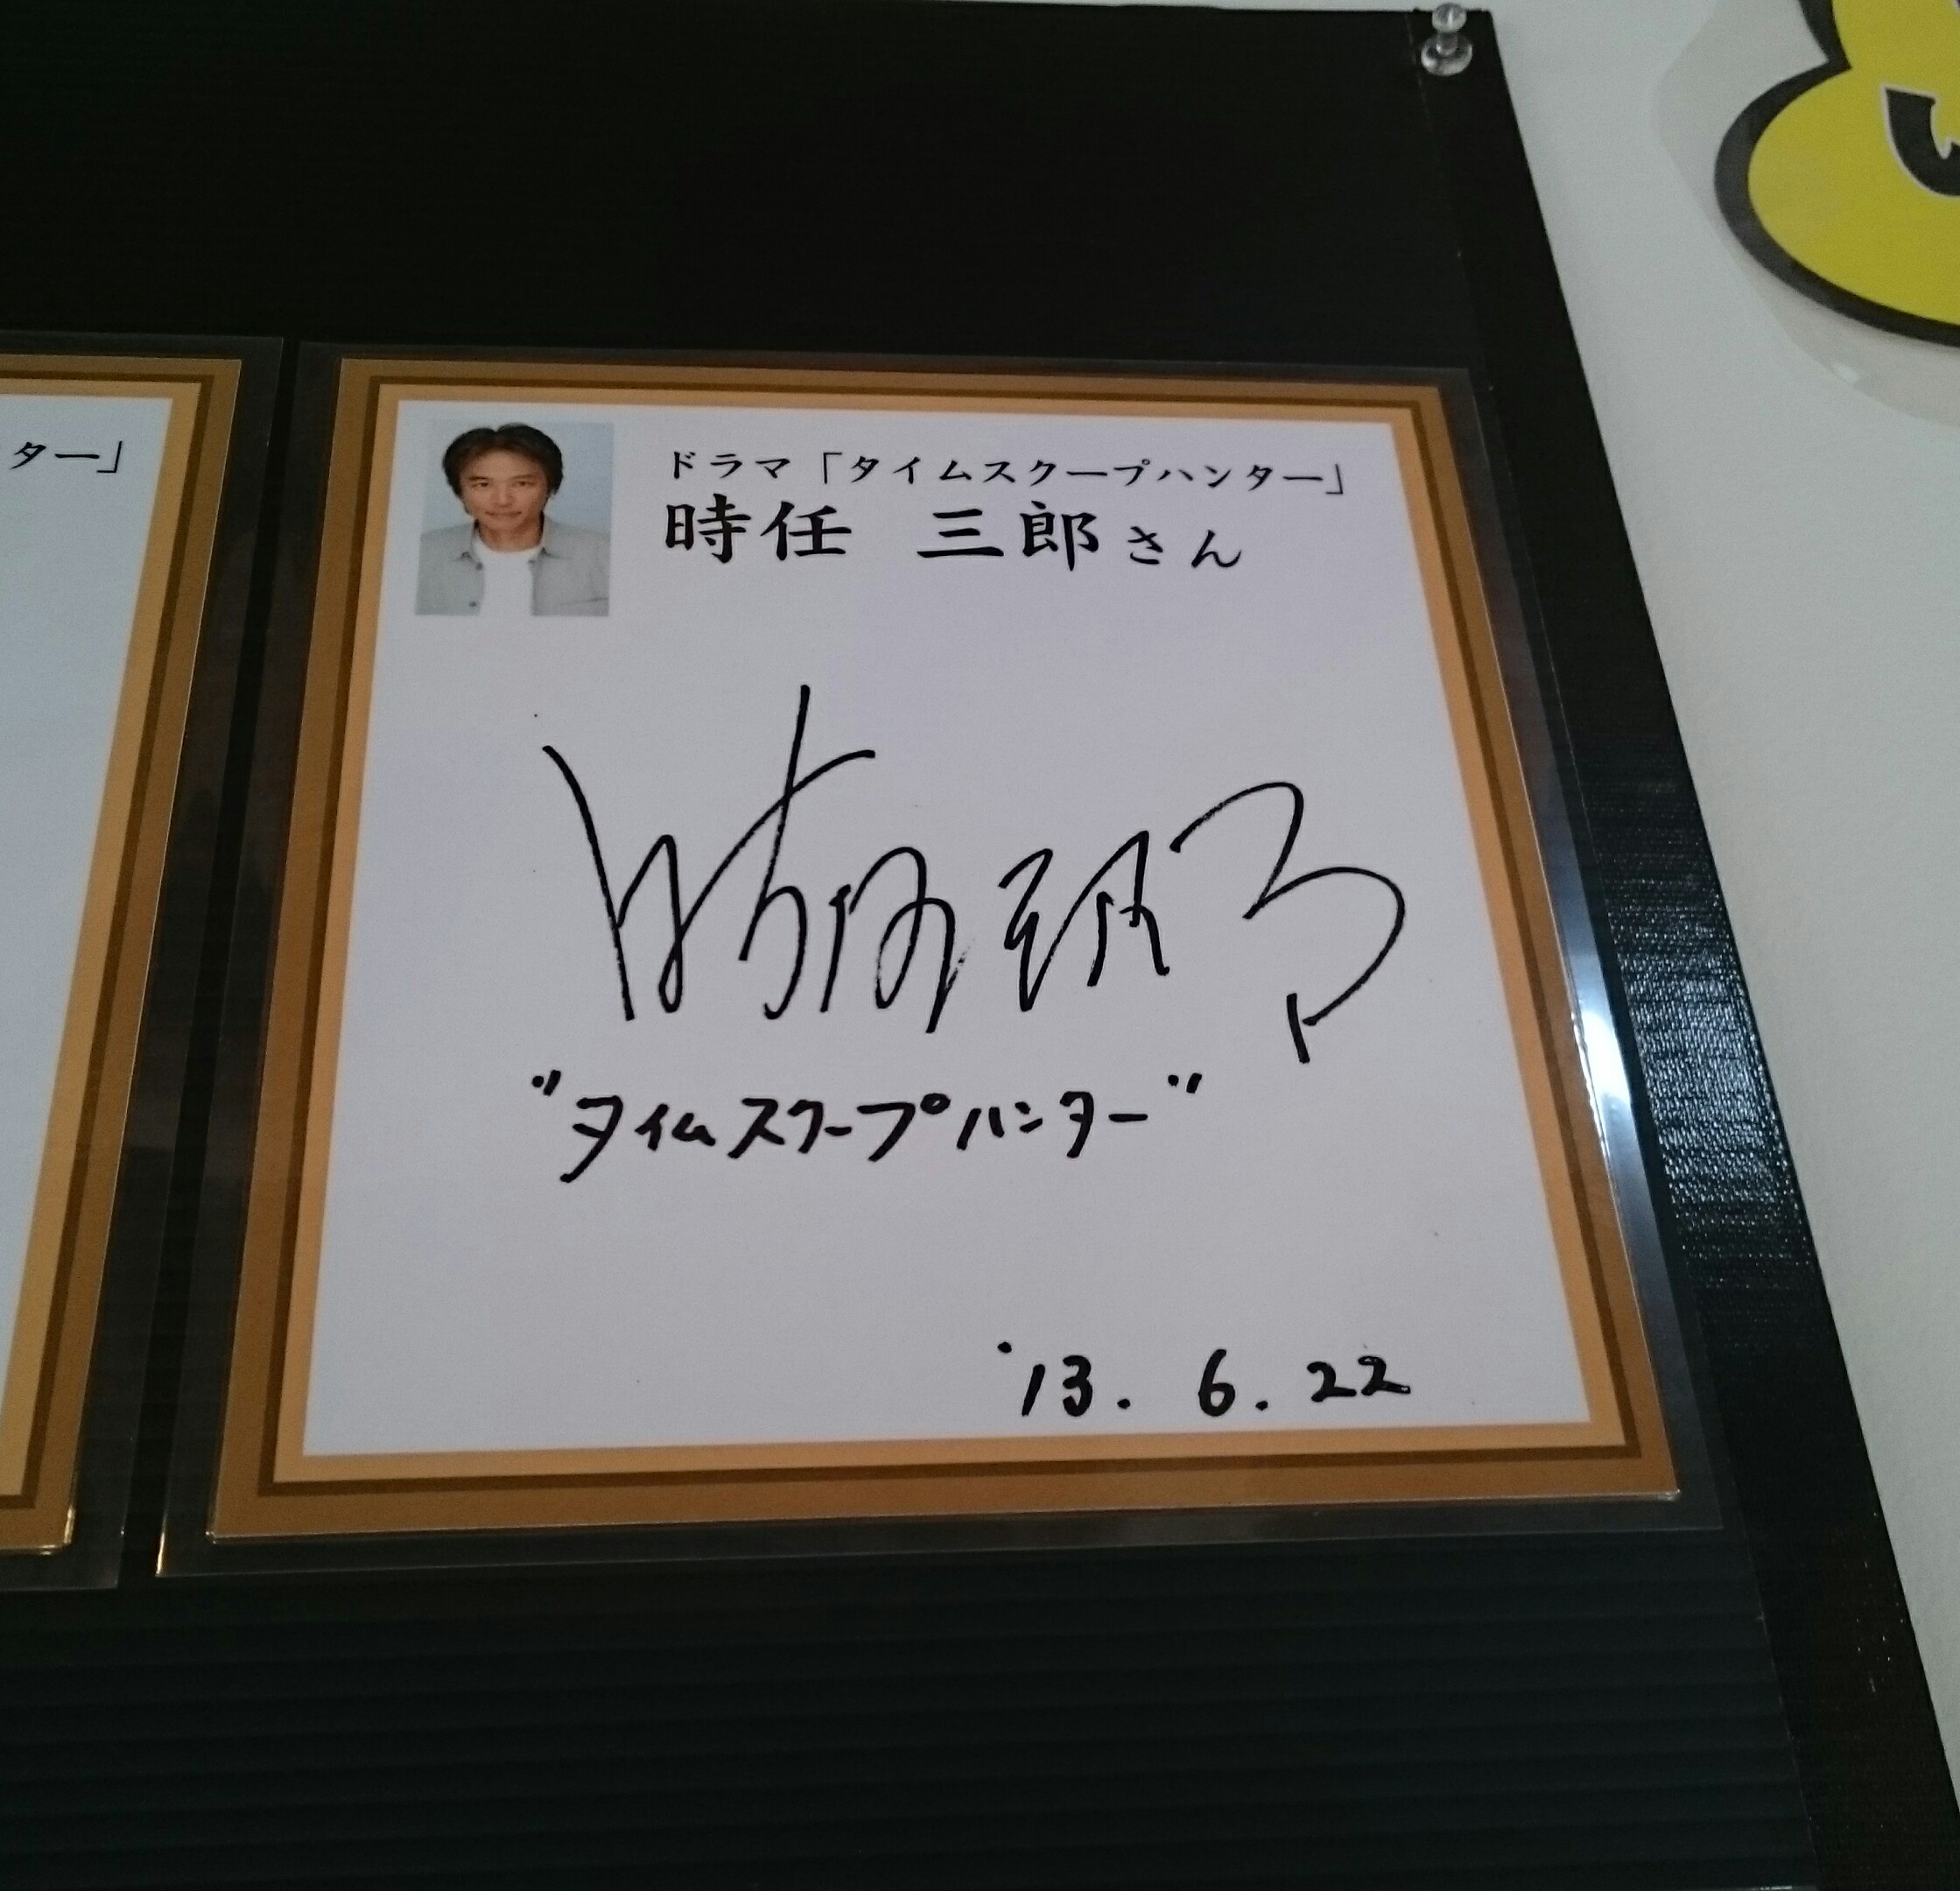 ター」
ドラマ「タイムスクープハンター」
時任 三郎さん
時任三郎
"タイムスクープハンター"
'13. 6. 22